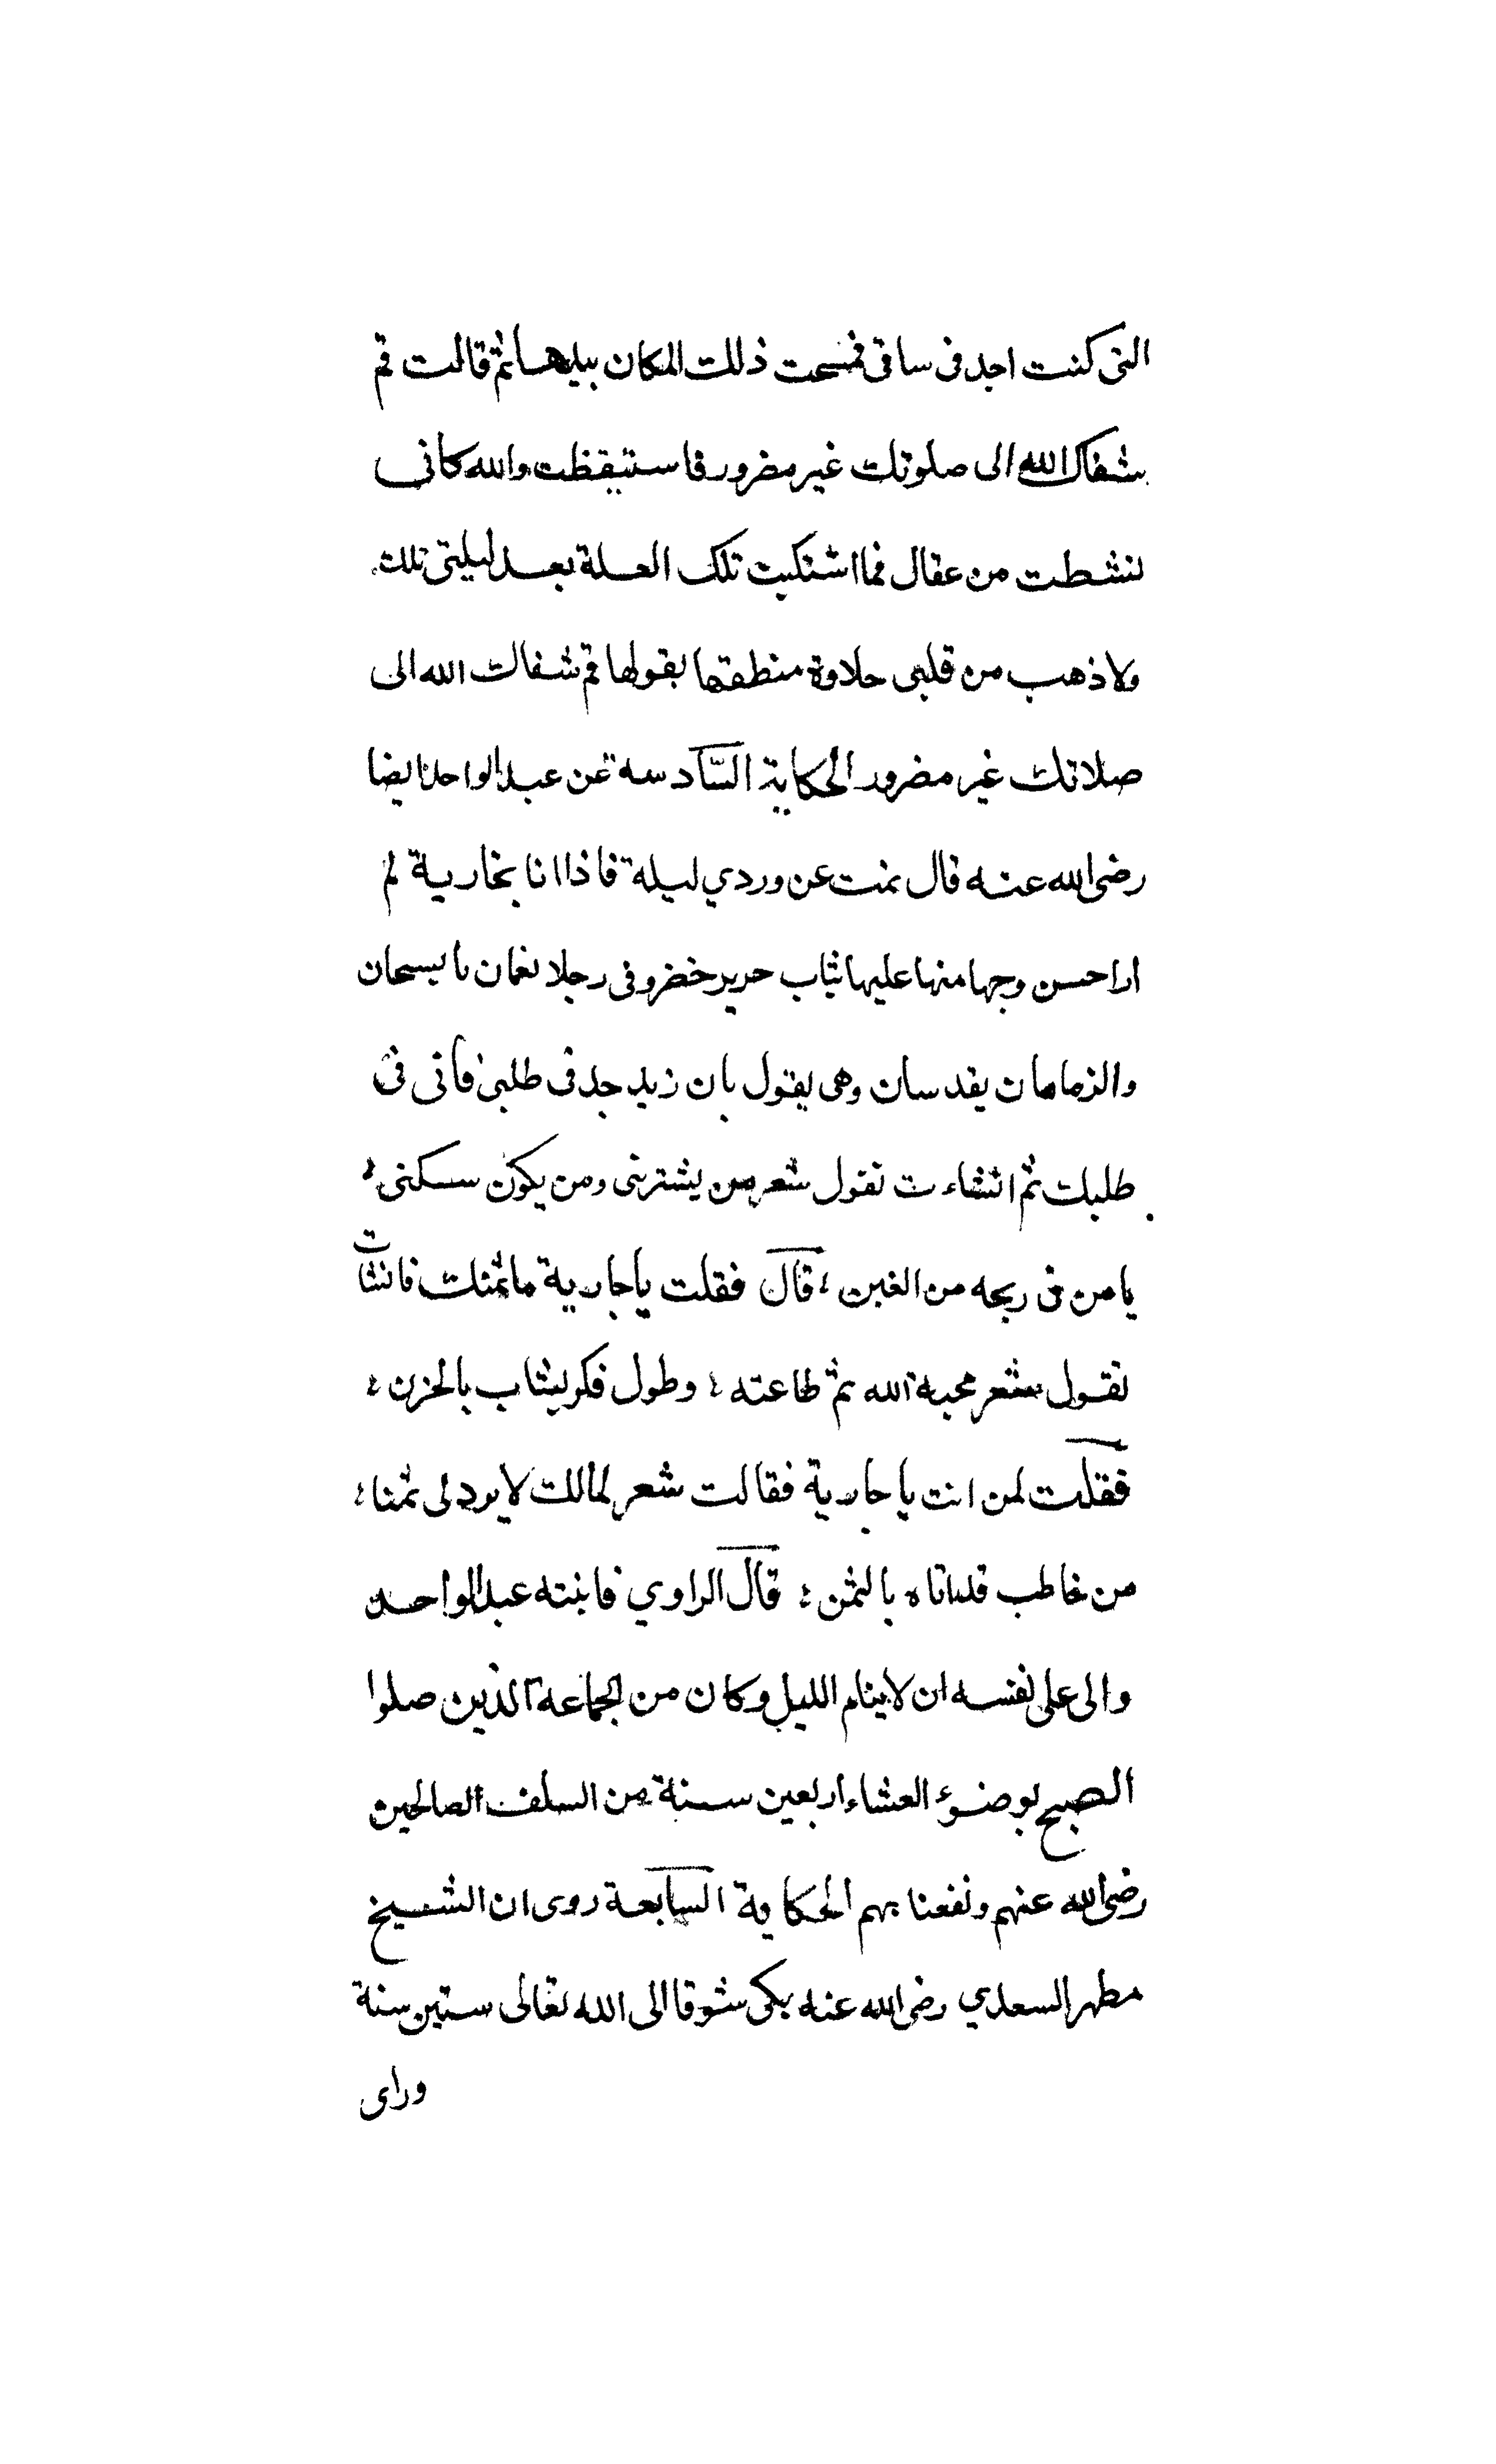 التى كنت اجد فى ساقى فمسحت ذلك المكان بيدها ثم قالت قم
شفاك الله الى صلوتك غير مضرور فاستيقظت والله كانى
نشطت من عقال فما اشتكيت تلك العلة بعد ليلتى تلك
ولا ذهب من قلبى حلاوة منطقها بقولها قم شفاك الله الى
صلاتك غير مضرور الحكاية السادسة عن عبد الواحد ايضا
رضى الله عنه قال نمت عن وردي ليلة فاذا انا بجارية لم
ار احسن وجها منها عليها ثياب حرير خضر وفى رجلا نعمان يا يسبحان
والزمامان يقدسان وهى يقول بان زيد جد فى طلبى فأنى فى
طلبك ثم انشاءت تقول شعر من يشترينى ومن يكون سكنى
يا من فى ربحه من الغبن قال فقلت يا جارية ما ثمنك فانشات
تقول شعر محبة الله ثم طاعته وطول فكر يشاب بالحزن
فقلت لمن انت يا جارية فقالت شعر لمالك لا يرد لى ثمنا
من خاطب قد اتاه بالثمن قال الراوي فانبته عبد الواحد
والى على نفسه ان لا ينام الليل وكان من الجماعة الذين صلوا
الصبح بوضوء العشاء اربعين سنة من السلف الصالحين
رضى الله عنهم ونفعنا بهم الحكاية السابعة روى ان الشيخ
مطهر السعدي رضى الله عنه بكى شوقا الى الله تعالى ستين سنة
وراى